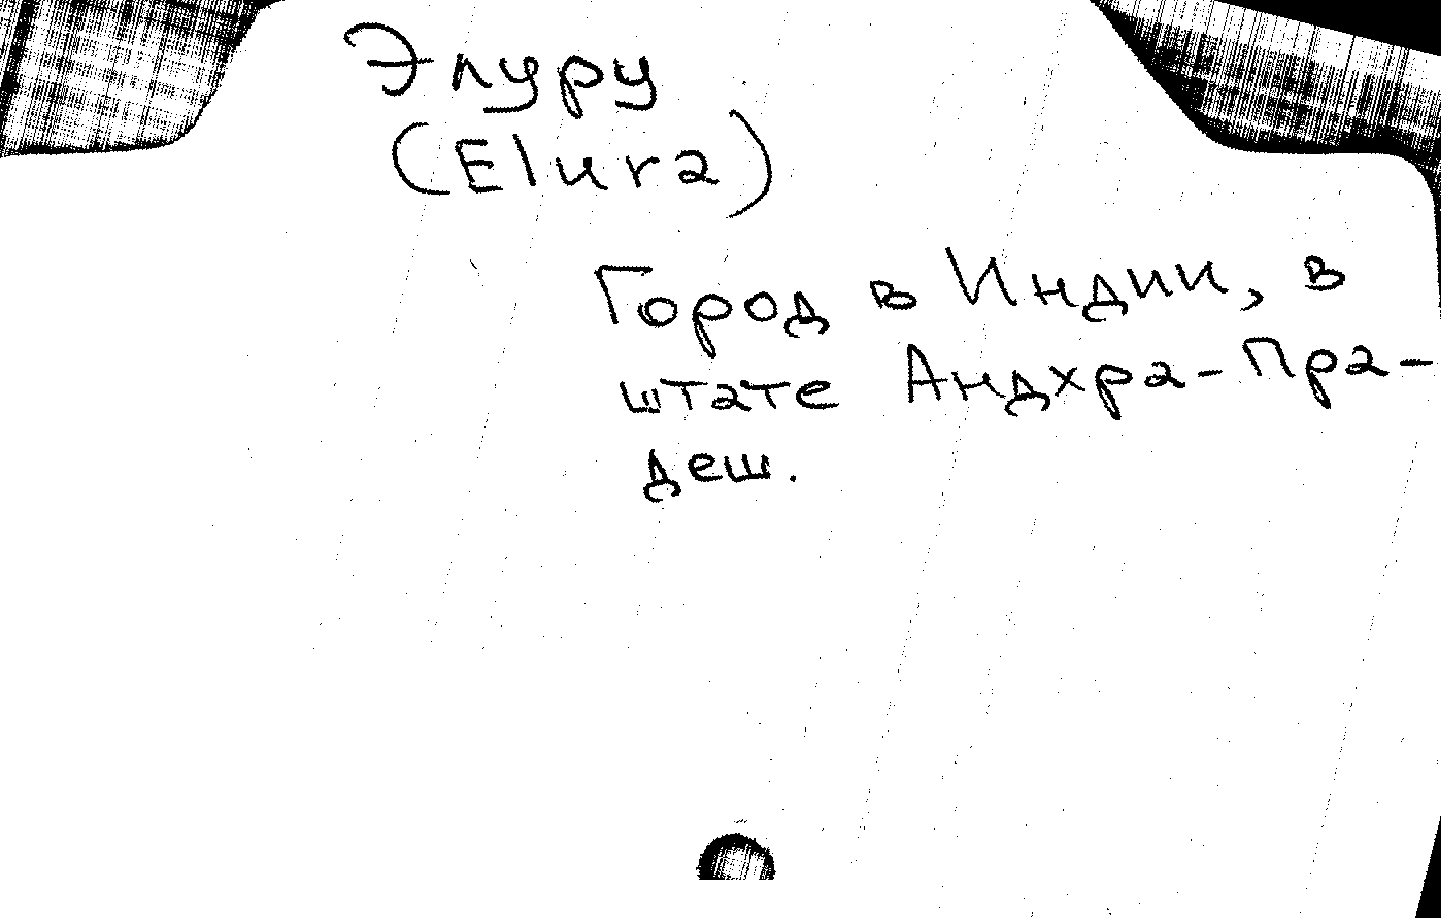 Элуру
(Elura)
Город в Индии, в
штате Андхра-Пра-
деш.